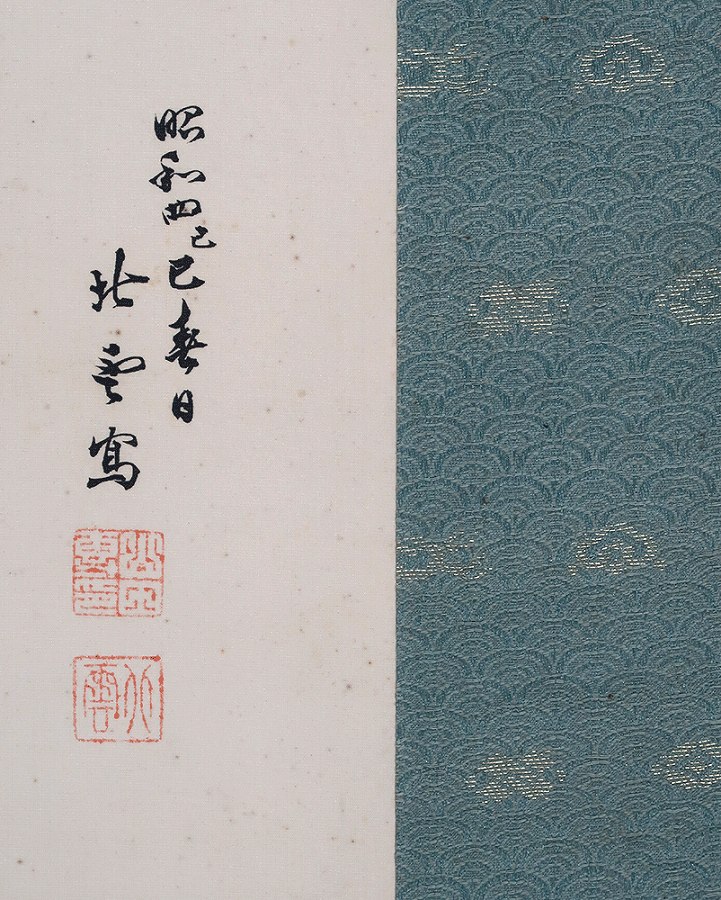 昭和四己巳春日
北雲寫
北雲